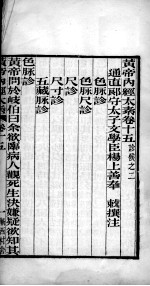 黃帝內經太素卷十五 診候之二
通直郎守太子文學臣楊上善奉 敕撰注
色脉診
色脉尺診
尺診
尺寸診
五藏脉診
色脉診
黃帝問於岐伯曰余欲臨病人觀死生決嫌疑欲知其
黃帝內經太素 卷十五